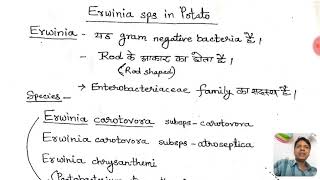 Erwinia sps in Potato
Erwinia - यह gram negative bacteria है।
- Rod के आकार का होता है।
(Rod shaped)
- Enterobacteriaceae family का सदस्य है।
Species -
Erwinia carotovora subsps - carotovora
Erwinia carotovora subsps - atroseptica
Erwinia chrysanthemi